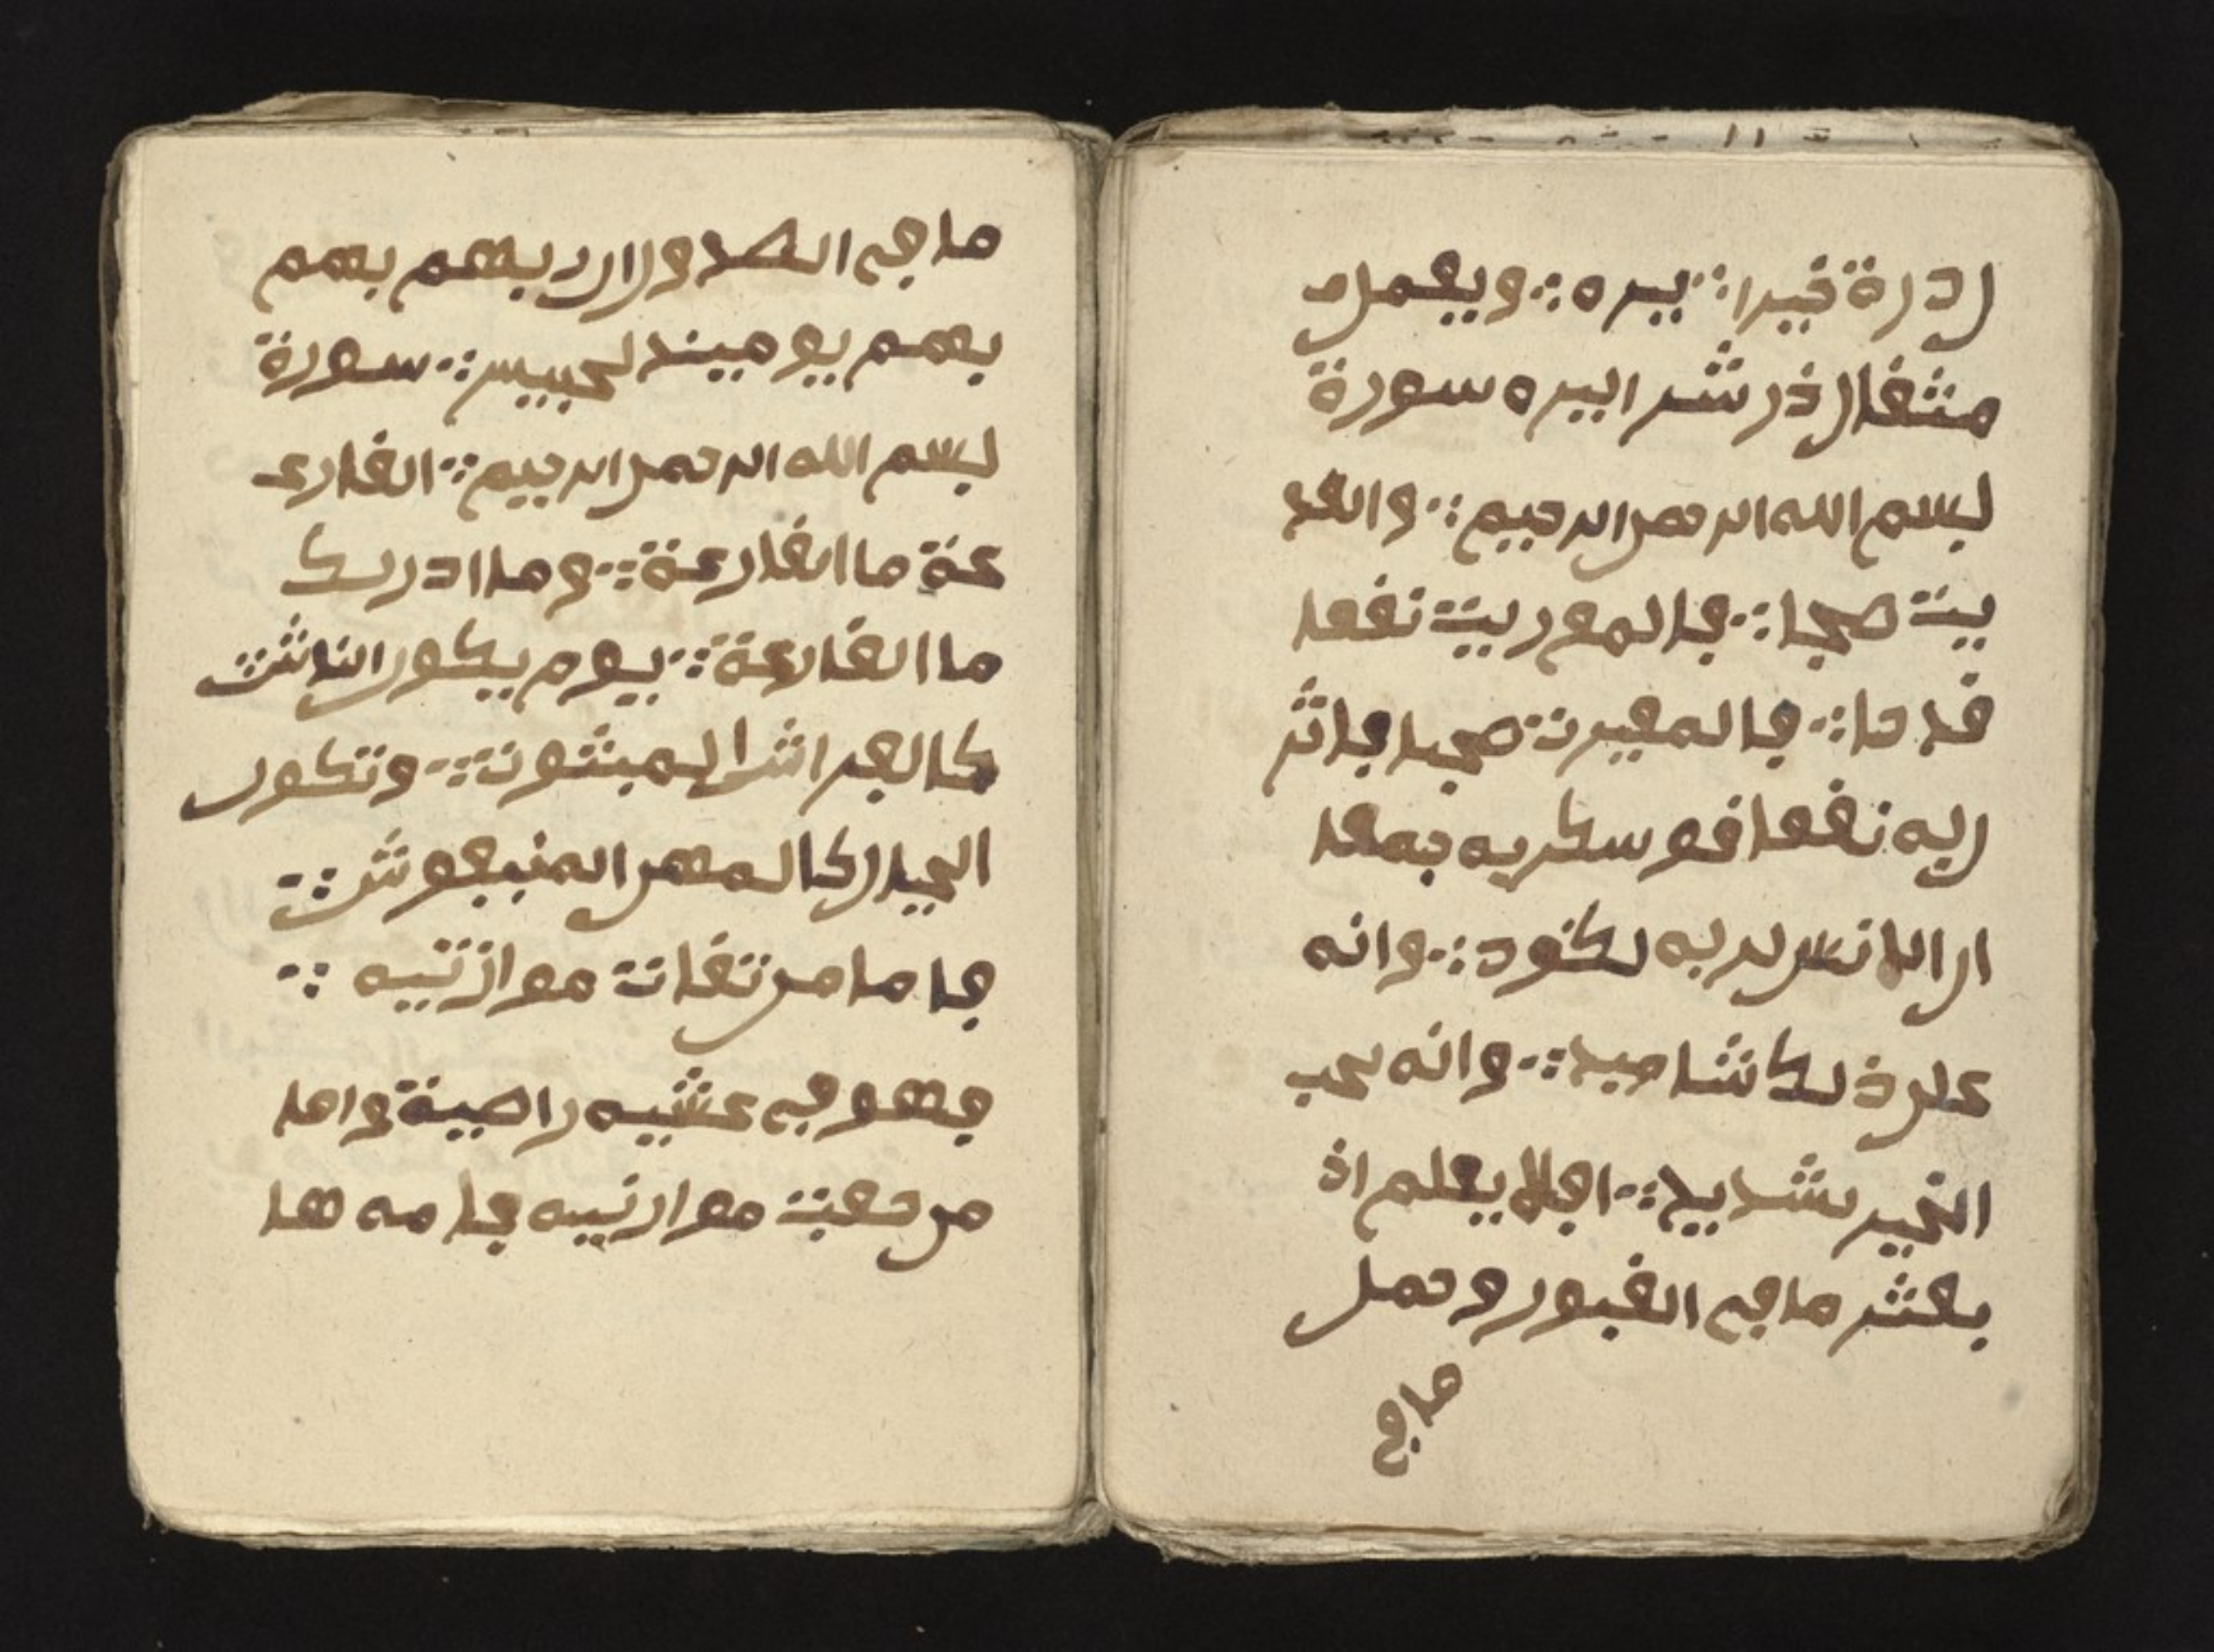 ل ذرة خيرا ∴ يره ∴ ويعمل م
مثقال ذر شر ايره سورة
بسم الله الرحمن الرحيم ∴ والعد
يت صبحا ∴ فالموريت نفعا
قدحا ∴ فالمغيرت صبحا فاثر
ريه نقعا فو سكربه جمعا
ان الانس لربه لكنود ∴ وانه
على ذلك شاهيد ∴ وانه لحب
الخير شديد ∴ افلا يعلم اذ
بعثر ما في القبور وحصل
ما في
ما في الصدور ان ربهم بهم
بهم يوميند لخبير ∴ سورة
بسم الله الرحمن الرحيم ∴ القارع
عة ما القارعة ∴ وما ادريك
ما القارعة ∴ يوم يكون الناش
كالفراش المبثوت ∴ وتكون
الجبال كالعهن المنفوش ∴
فاما من ثقلت موازنيه ∴
فهو في عشيه راضية واما
من خفت موازنيه فامه ها